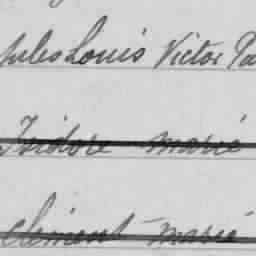 Jules Louis Victor Pa
Isidore marié
Clément marié